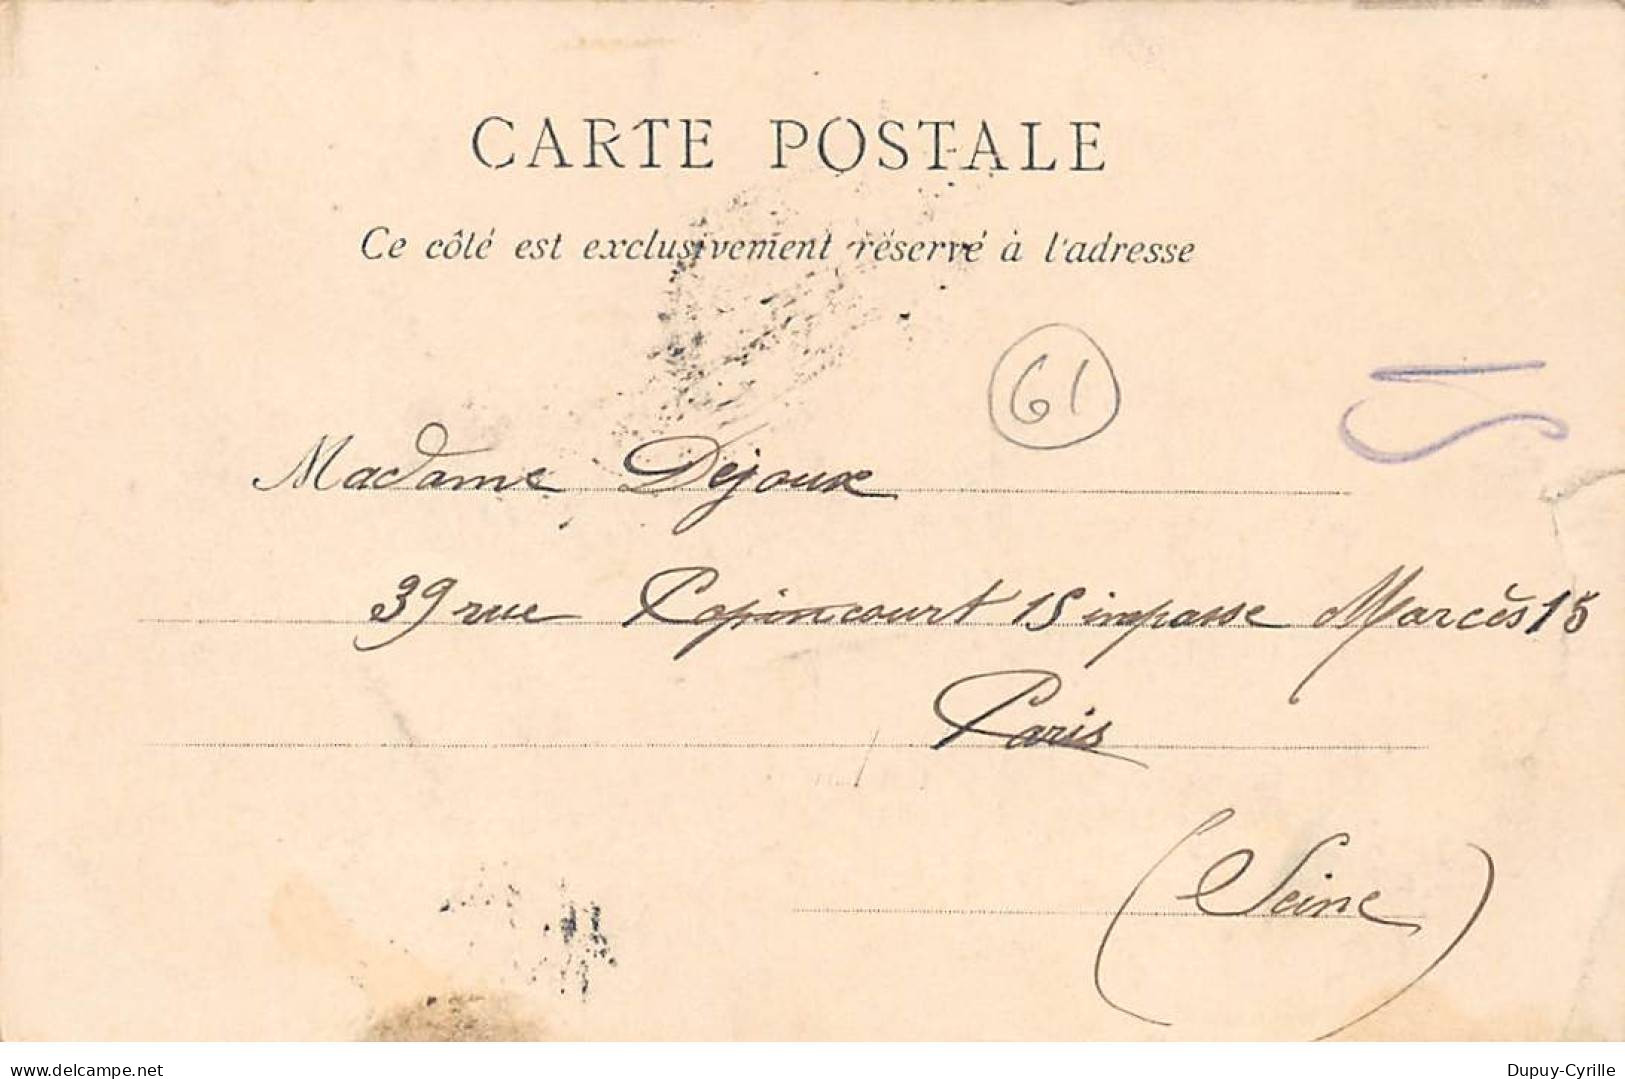 CARTE POSTALE
Ce côté est exclusivement réservé à l'adresse
61
Madame Dejoux
39 rue Popincourt 15 impasse Marcès 15
Paris
(Seine)
www.delcampe.net
Dupuy-Cyrille